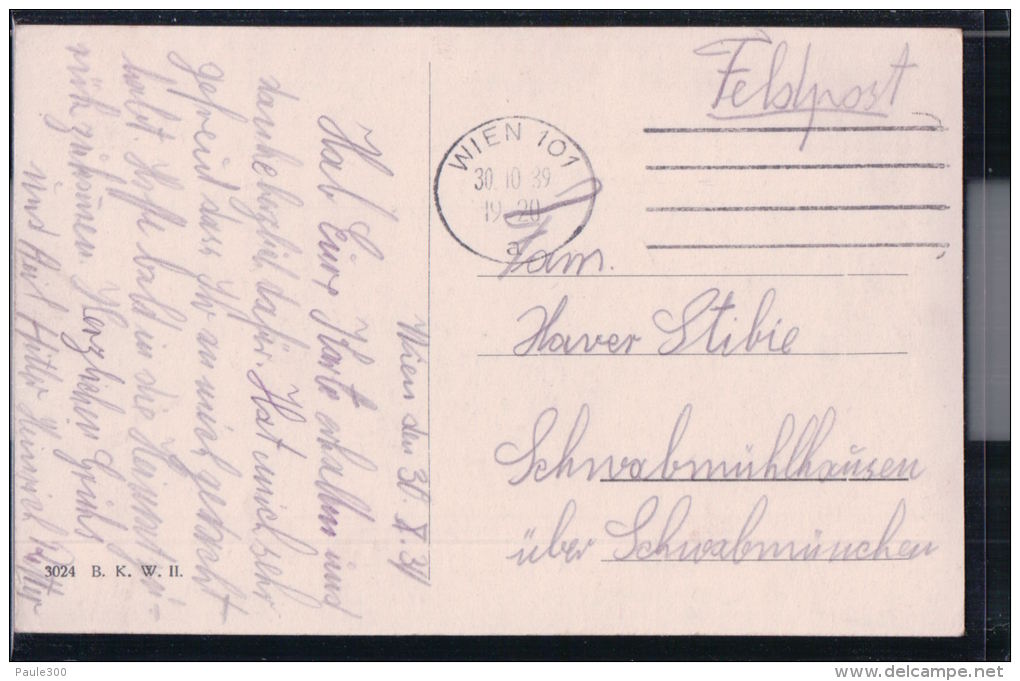 Feldpost
WIEN 101
30.10.39
19-20
a
Fam.
Xaver Stibie
Schwabmühlhausen
über Schwabmünchen
Wien den 30. X. 39
Hab Eure Karte erhalten und
danke dafür. Hat mich sehr
gefreut dass Ihr an mich gedacht
habt. Hoffe bald in die Heimat
zu können. Herzlichen Gruß
und Heil Hitler Heinrich
3024 B. K. W. II.
Paule300
www.delcampe.net